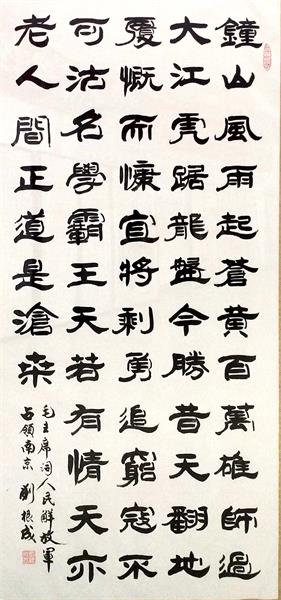 鐘山風雨起蒼黄百萬雄師過
大江虎踞龍盤今勝昔天翻地
覆慨而慷宜將剩勇追窮寇不
可沽名學霸王天若有情天亦
老人間正道是滄桒
毛主席词人民解放軍
占領南京 劉根成